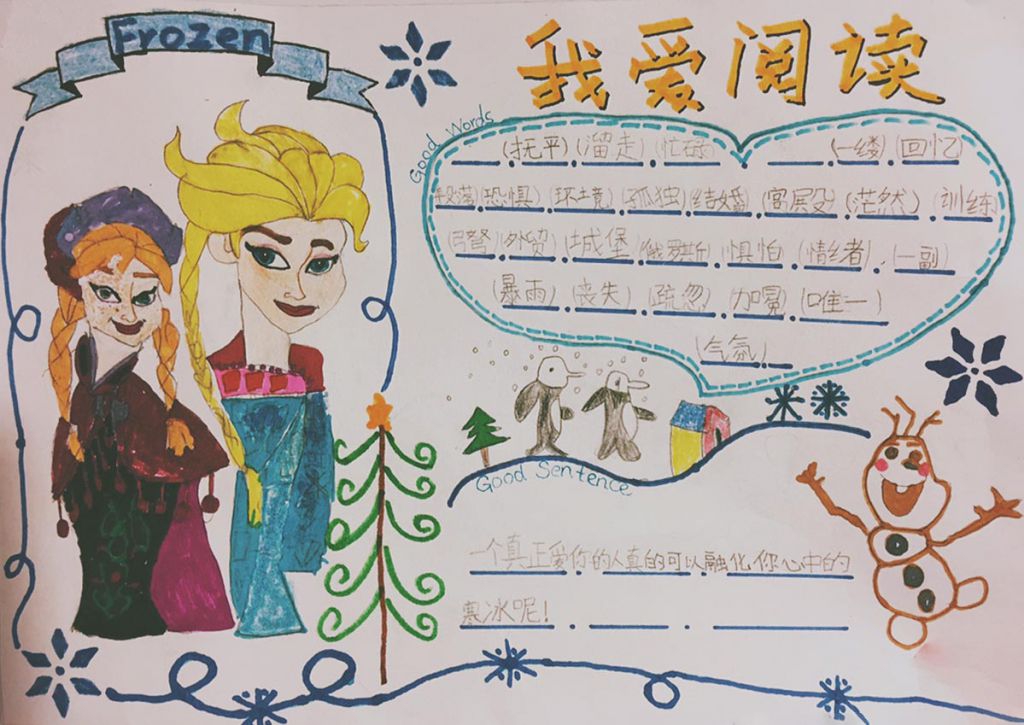 Frozen
我爱阅读
Good Words
(抚平)(溜走)(忙碌)(一缕)(回忆)
段落(恐惧)(环境)(孤独)(结婚)(宫殿)(茫然)(训练)
(弓弩)外贸(城堡)俄罗斯 惧怕(情绪者)一副
(暴雨)(丧失)(疏忽)(加冕)(唯一)
(气氛)
Good Sentence
一个真正爱你的人真的可以融化你心中的
寒冰呢!